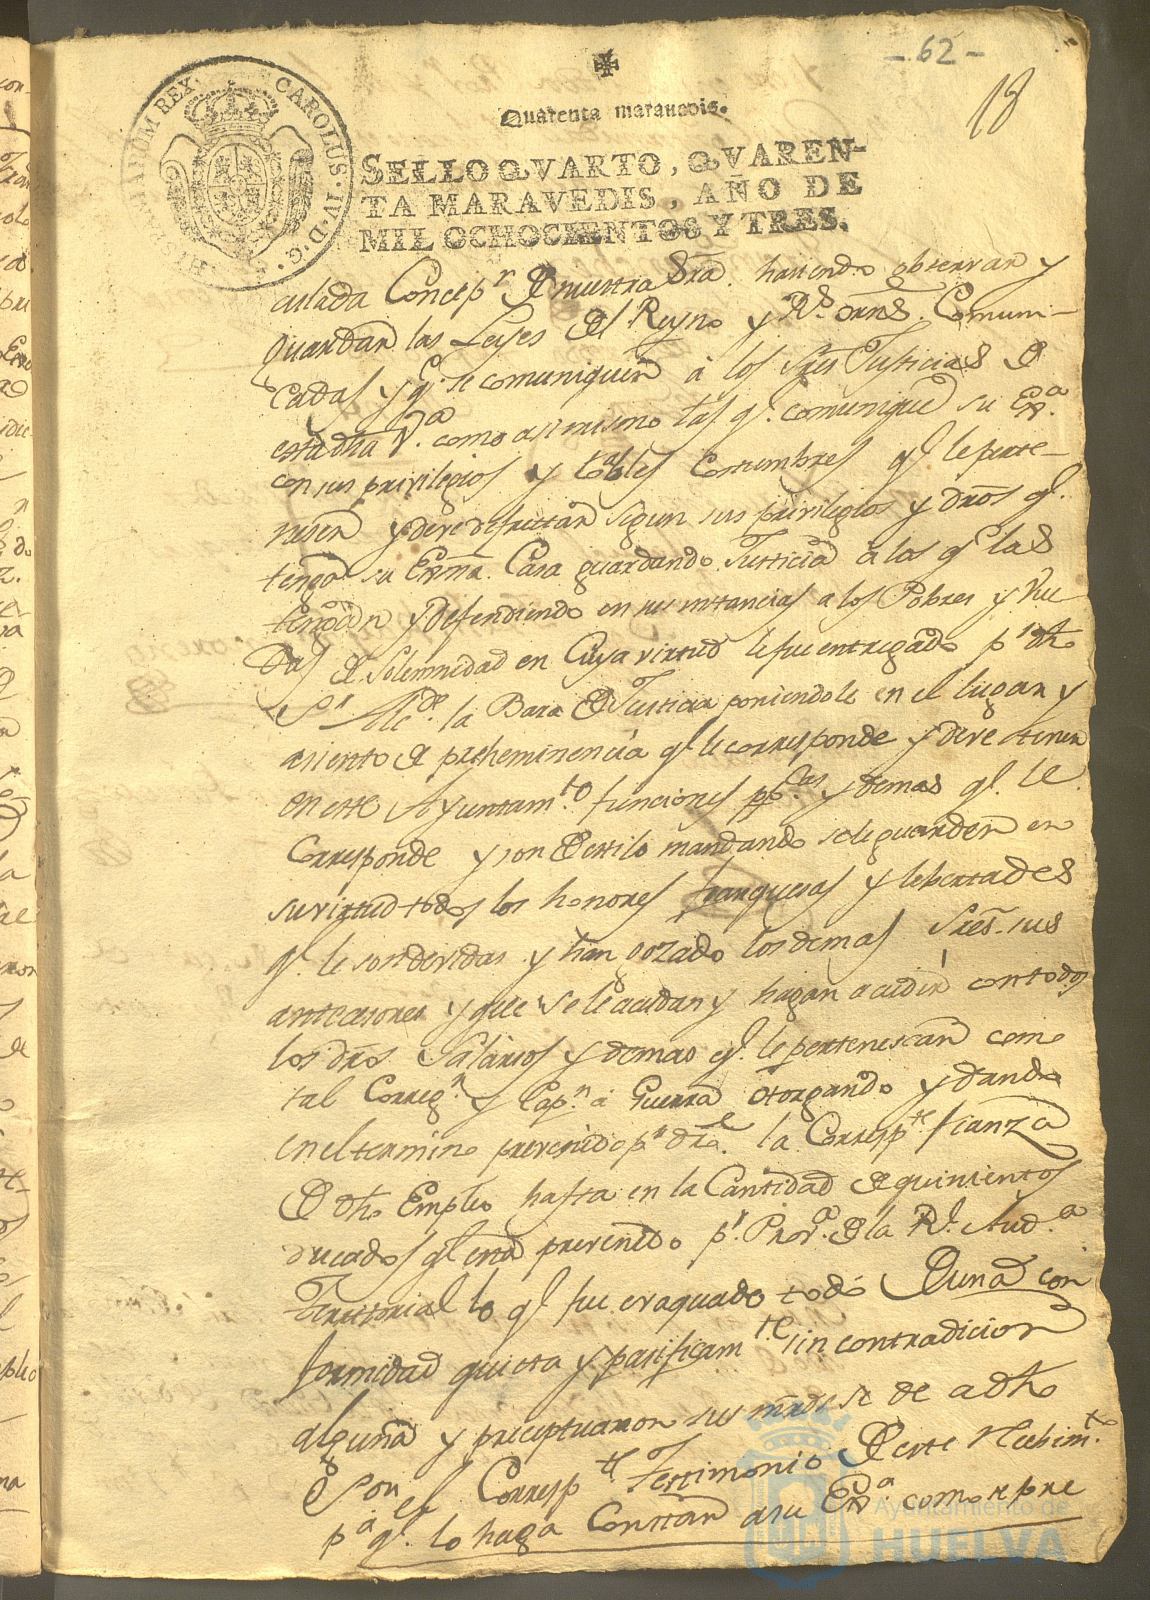 - 62 -
18
Quarenta maravedis.
HISPANIARUM REX. CAROLUS · IV · D · G ·
SELLO QVARTO, QVAREN-
TA MARAVEDIS, AÑO DE
MIL OCHOCIENTOS Y TRES.
culada Concepn. de nuestra Sra. haciendo observar y
guardar las Leyes del Reyno y Rs. ordns. Comuni-
cadas y q. se comuniquen à los Sres. Justicias de
esta dha Va. como asi mismo las q. comunique su Exa.
con sus privilegios y loables Costumbres q. le perte-
nesen y deve disfrutar segun sus privilegios y dros q.
tenga su Exma. Casa guardando Justicia à los q. las
tengan y defendiendo en sus instancias a los Pobres y Viu
das de Solemnidad en Cuya virtud le fue entregado pr. dho
Sr. Alcde. la Bara de Justicia poniendole en el lugar y
asiento de preheminencia q. le corresponde y deve tener
en este Ayuntamto. funciones ppcas. y demas q. le
Corresponde y son de estilo mandando se le guarden en
su virtud todos los honores franquesas y libertades
q. le son devidas y han gozado los demas Sres. sus
antecesores y que se le acudan y hagan acudir con todos
los dros. Salarios y demas q. le pertenescan como
tal Corregr. y Capn. à Guerra otorgando y dando
en el termino prevenido pr. dro. la Correspte. fianza
de dho Empleo hasta en la Cantidad de quinientos
ducados q. está prevenido pr. Prova. de la Rl. Auda.
Territorial lo q. fue evaquado todo de una con
formidad quieta y pasificamte. sin contradicion
alguna y preceptuaron sus mrds. se de a dho
Sor. el Correspte. Testimonio de este Recibimto.
pa. q. lo haga Constar a su Exa. como repre
Ayuntamiento de
HUELVA